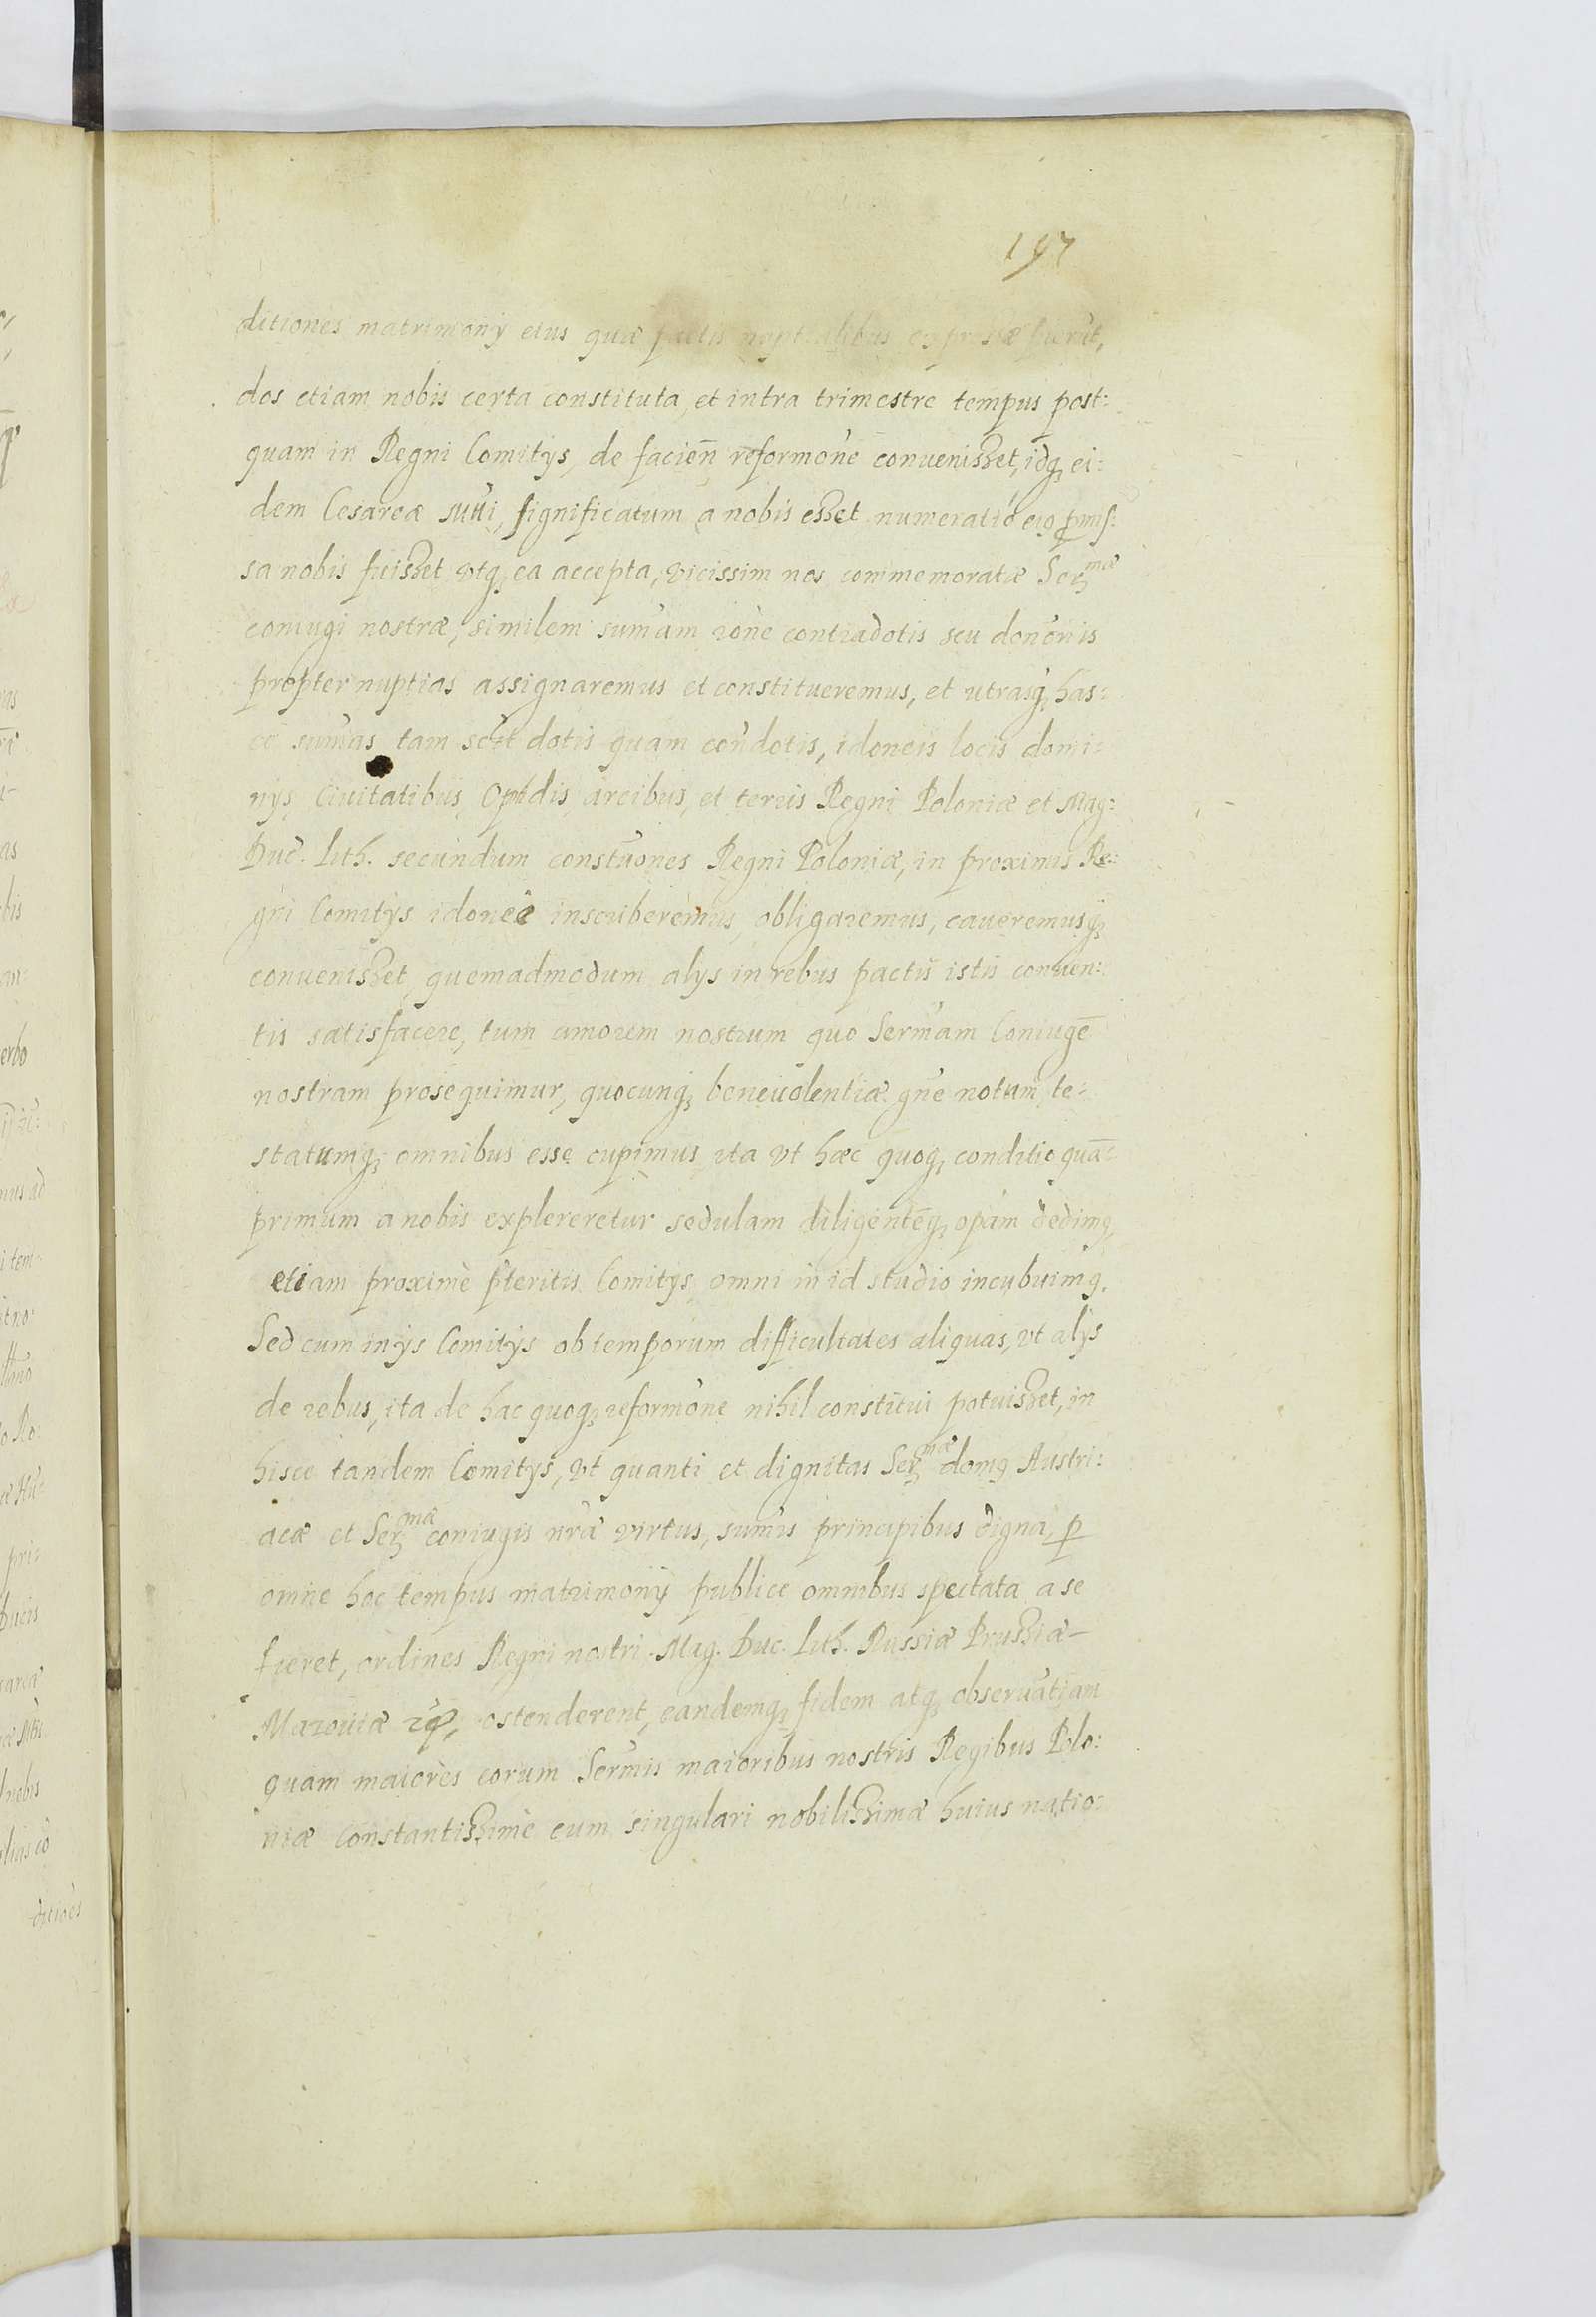 197
ditiones matrimonÿ eius quæ pactis nuptialibus expressæ fuerūt,
dos etiam nobis certa constituta, et intra trimestre tempus post:
quam in Regni Comitÿs, de facien̄ reformōne convenisset, idq₃ ei:
dem Cesareæ significatum a nobis esset numeratio
sa nobis fuisset utq₃ ea accepta, vicissim nos commemoratæ Serᵐᵃᵉ
coniugi nostræ, similem sum̄am rōne contradotis seu donōnis
propter nuptias assignaremus et constitueremus, et utrasq₃ has:
ce sum̄as tam dotis quam con̄dotis, idoneis locis domi:
nÿs, Civitatibus, Opidis arcibus, et terris Regni Poloniæ et Mag:
Duc. Lith. secundum constūones Regni Poloniæ, in proximis Re:
gni Comitÿs idonee inscriberemus, obligaremus, caveremusq₃
convenisset, quemadmodum alÿs in rebus pactis istis conven:
tis satisfacere, tum amorem nostrum quo Serm̄am Coniugē
nostram prosequimur, quocunq₃ benevolentiæ gn̄e notam te:
statumq₃ omnibus esse cupimus ita vt hæc quoq₃ conditio quā:
primum a nobis expleretetur sedulam diligentēq₃ opam̄ dedimq₃
etiam proximè pt̄eritis Comitÿs omni in id studio incubuimq₃.
Sed cum in ÿs Comitÿs ob temporum difficultates aliquas, vt alÿs
de rebus, ita de hac quoq₃ reformōne nihil constitui potuisset, in
hisce tandem Comitÿs, vt quanti et dignitas Serᵐᵃᵉ domq₃ Austri:
acæ et Serᵐᵃᵉ coniugis nr̄æ virtus, sum̄is principibus digna, ꝑ
omne hoc tempus matrimonÿ publice omnibus spectata a se
fieret, ordines Regni nostri Mag. Duc. Lith. Russiæ Prussiæ
Mazoviæ ostenderent, eandemq₃ fidem atq₃ observātiam
quam maiores eorum Serm̄is maioribus nostris Regibus Polo:
niæ Constantissimè cum singulari nobilissimæ huius natio: